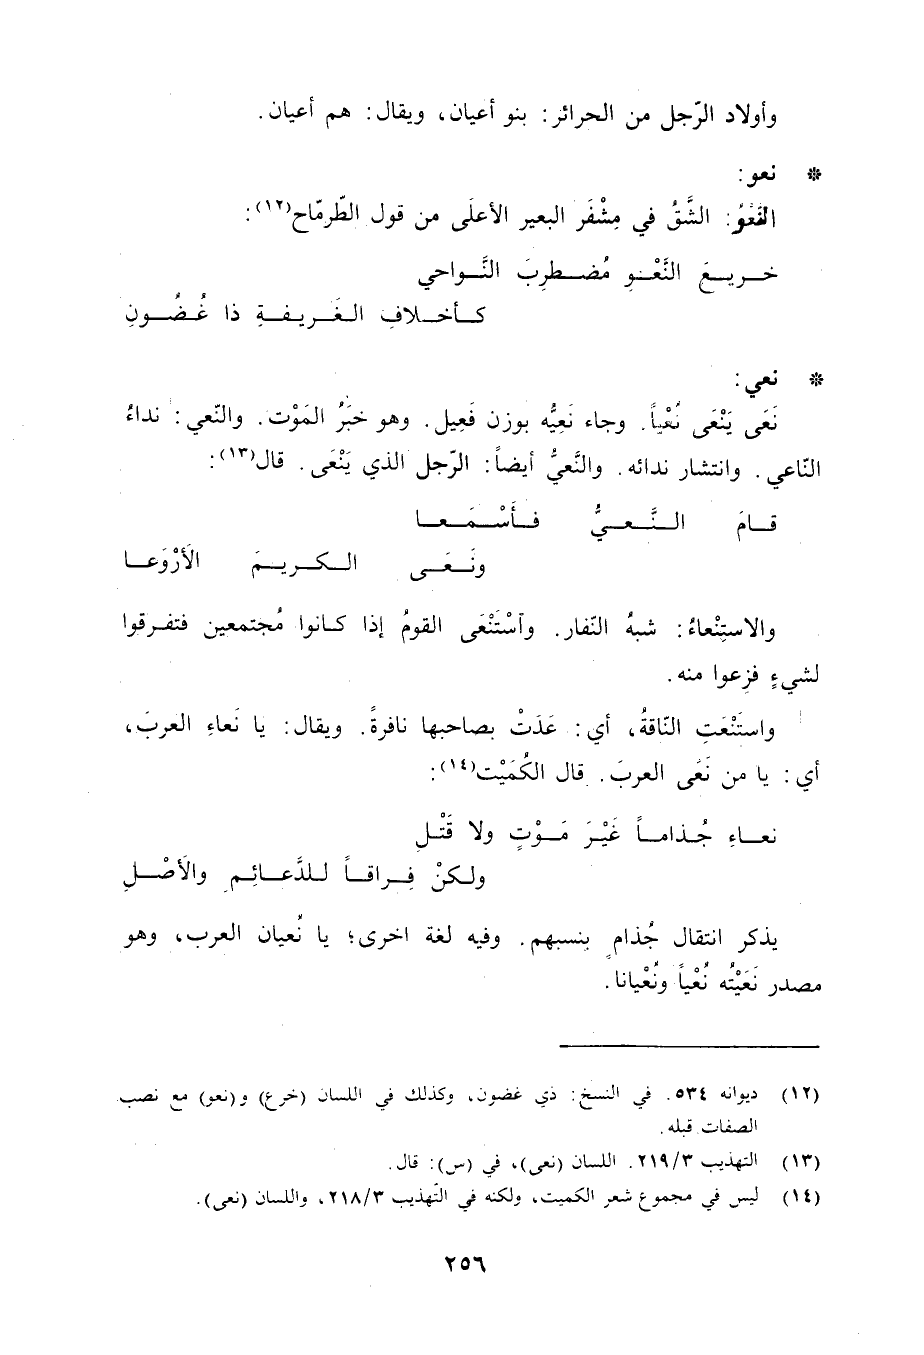 وأولاد الرّجل من الحرائر: بنو أعيان، ويقال: هم أعيان.
* نعو:
النَّعْوُ: الشَّقُّ في مِشْفَر البعير الأعلَى من قول الطّرمّاح(١٢):
خـريـعَ النَّعْـوِ مُضـطرِبَ النَّـواحي
كـأخـلافِ الـغَـريـفـةِ ذا غُـضُـونِ
* نعي:
نَعَى يَنْعَى نُعْياً. وجاء نَعِيُّه بوزن فَعِيل. وهو خبَرُ المَوْت. والنّعي: نداءُ
النّاعي. وانتشار ندائه. والنَّعيُّ أيضاً: الرّجل الذي يَنْعَى. قال(١٣):
قـامَ النَّـعـيُّ فـأسْـمَـعـا
ونَـعَـى الـكـريـمَ الأَرْوَعـا
والاستِنْعاءُ: شبهُ النّفار. وآسْتَنْعَى القومُ إذا كـانوا مُجتمعين فتفـرقوا
لشيءٍ فزِعوا منه.
واستَنْعَتِ النّاقةُ، أي: عَدَتْ بصاحبها نافرةً. ويقال: يا نَعاءِ العربَ،
أي: يا من نَعَى العربَ. قال الكُمَيْت(١٤):
نعـاءِ جُـذامـاً غَيْـرَ مَـوْتٍ ولا قَتْـلِ
ولكنْ فِـراقـاً للدَّعـائِـمِ والأَصْـلِ
يذكر انتقال جُذامٍ بنسبهم. وفيه لغة اخرى؛ يا نُعيان العرب، وهو
مصدر نَعَيْتُه نُعْياً ونُعْيانا.
(١٢) ديوانه ٥٣٤. في النسخ: ذي غضون، وكذلك في اللسان (خرع) و(نعو) مع نصب
الصفات قبله.
(١٣) التهذيب ٢١٩/٣. اللسان (نعى)، في (س): قال.
(١٤) ليس في مجموع شعر الكميت، ولكنه في التّهذيب ٢١٨/٣، واللسان (نعى).
٢٥٦